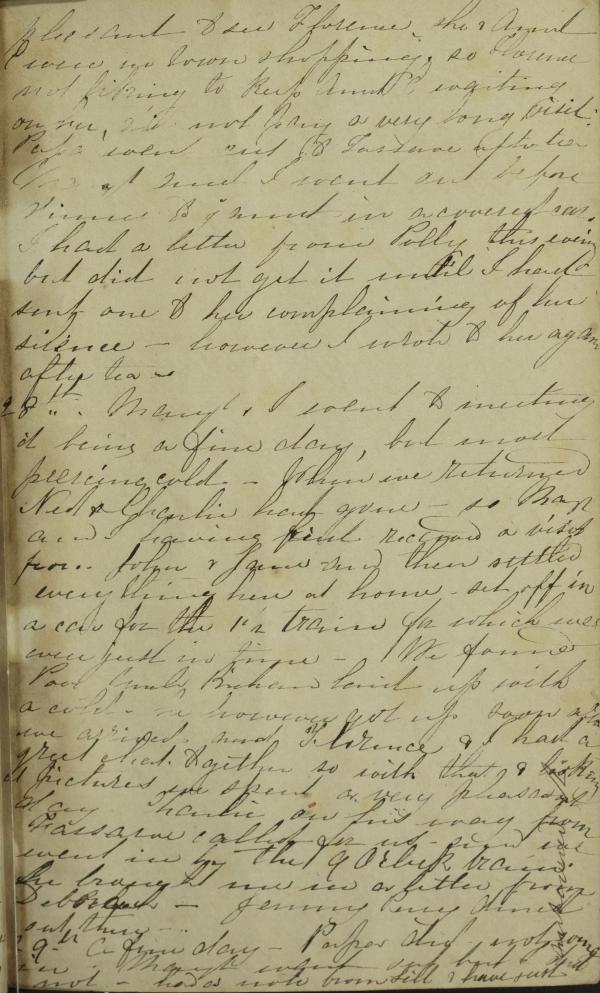 pleasant to see Florence, she & Aunt
were in town shopping, so Florence
not liking to keep Aunt waiting
on her, did not pay a very long visit.
Papa went out to Tassave after tea
and I went out before
dinner to Aunt in a covered car.
I had a letter from Polly this evening
but did not get it until I had
sent one to her complaining of her
silence – however I wrote to her again
after tea –
28th. Margt & I went to meeting
it being a fine day, but most
piercing cold – When we returned
Ned & Charlie had gone – so Marg
and having first received a visit
from John & Jane and then settled
everything here at home – set off in
a car for the 1 train for which we
were just in time – We found
Poor Aunt laid up with
a cold – she however got up soon after
we arrived and Florence & I had a
great chat together so with that & looking
at pictures we spent a very pleasant
day Charlie on his way from
Tassave called for us and we
went in by the 9 O'clock train
He brought me in a letter from
Deborah – Jenny
out there –
29th A fine day – Papa did not going
in Margt went out but I did
not – had a note from Sill & have just